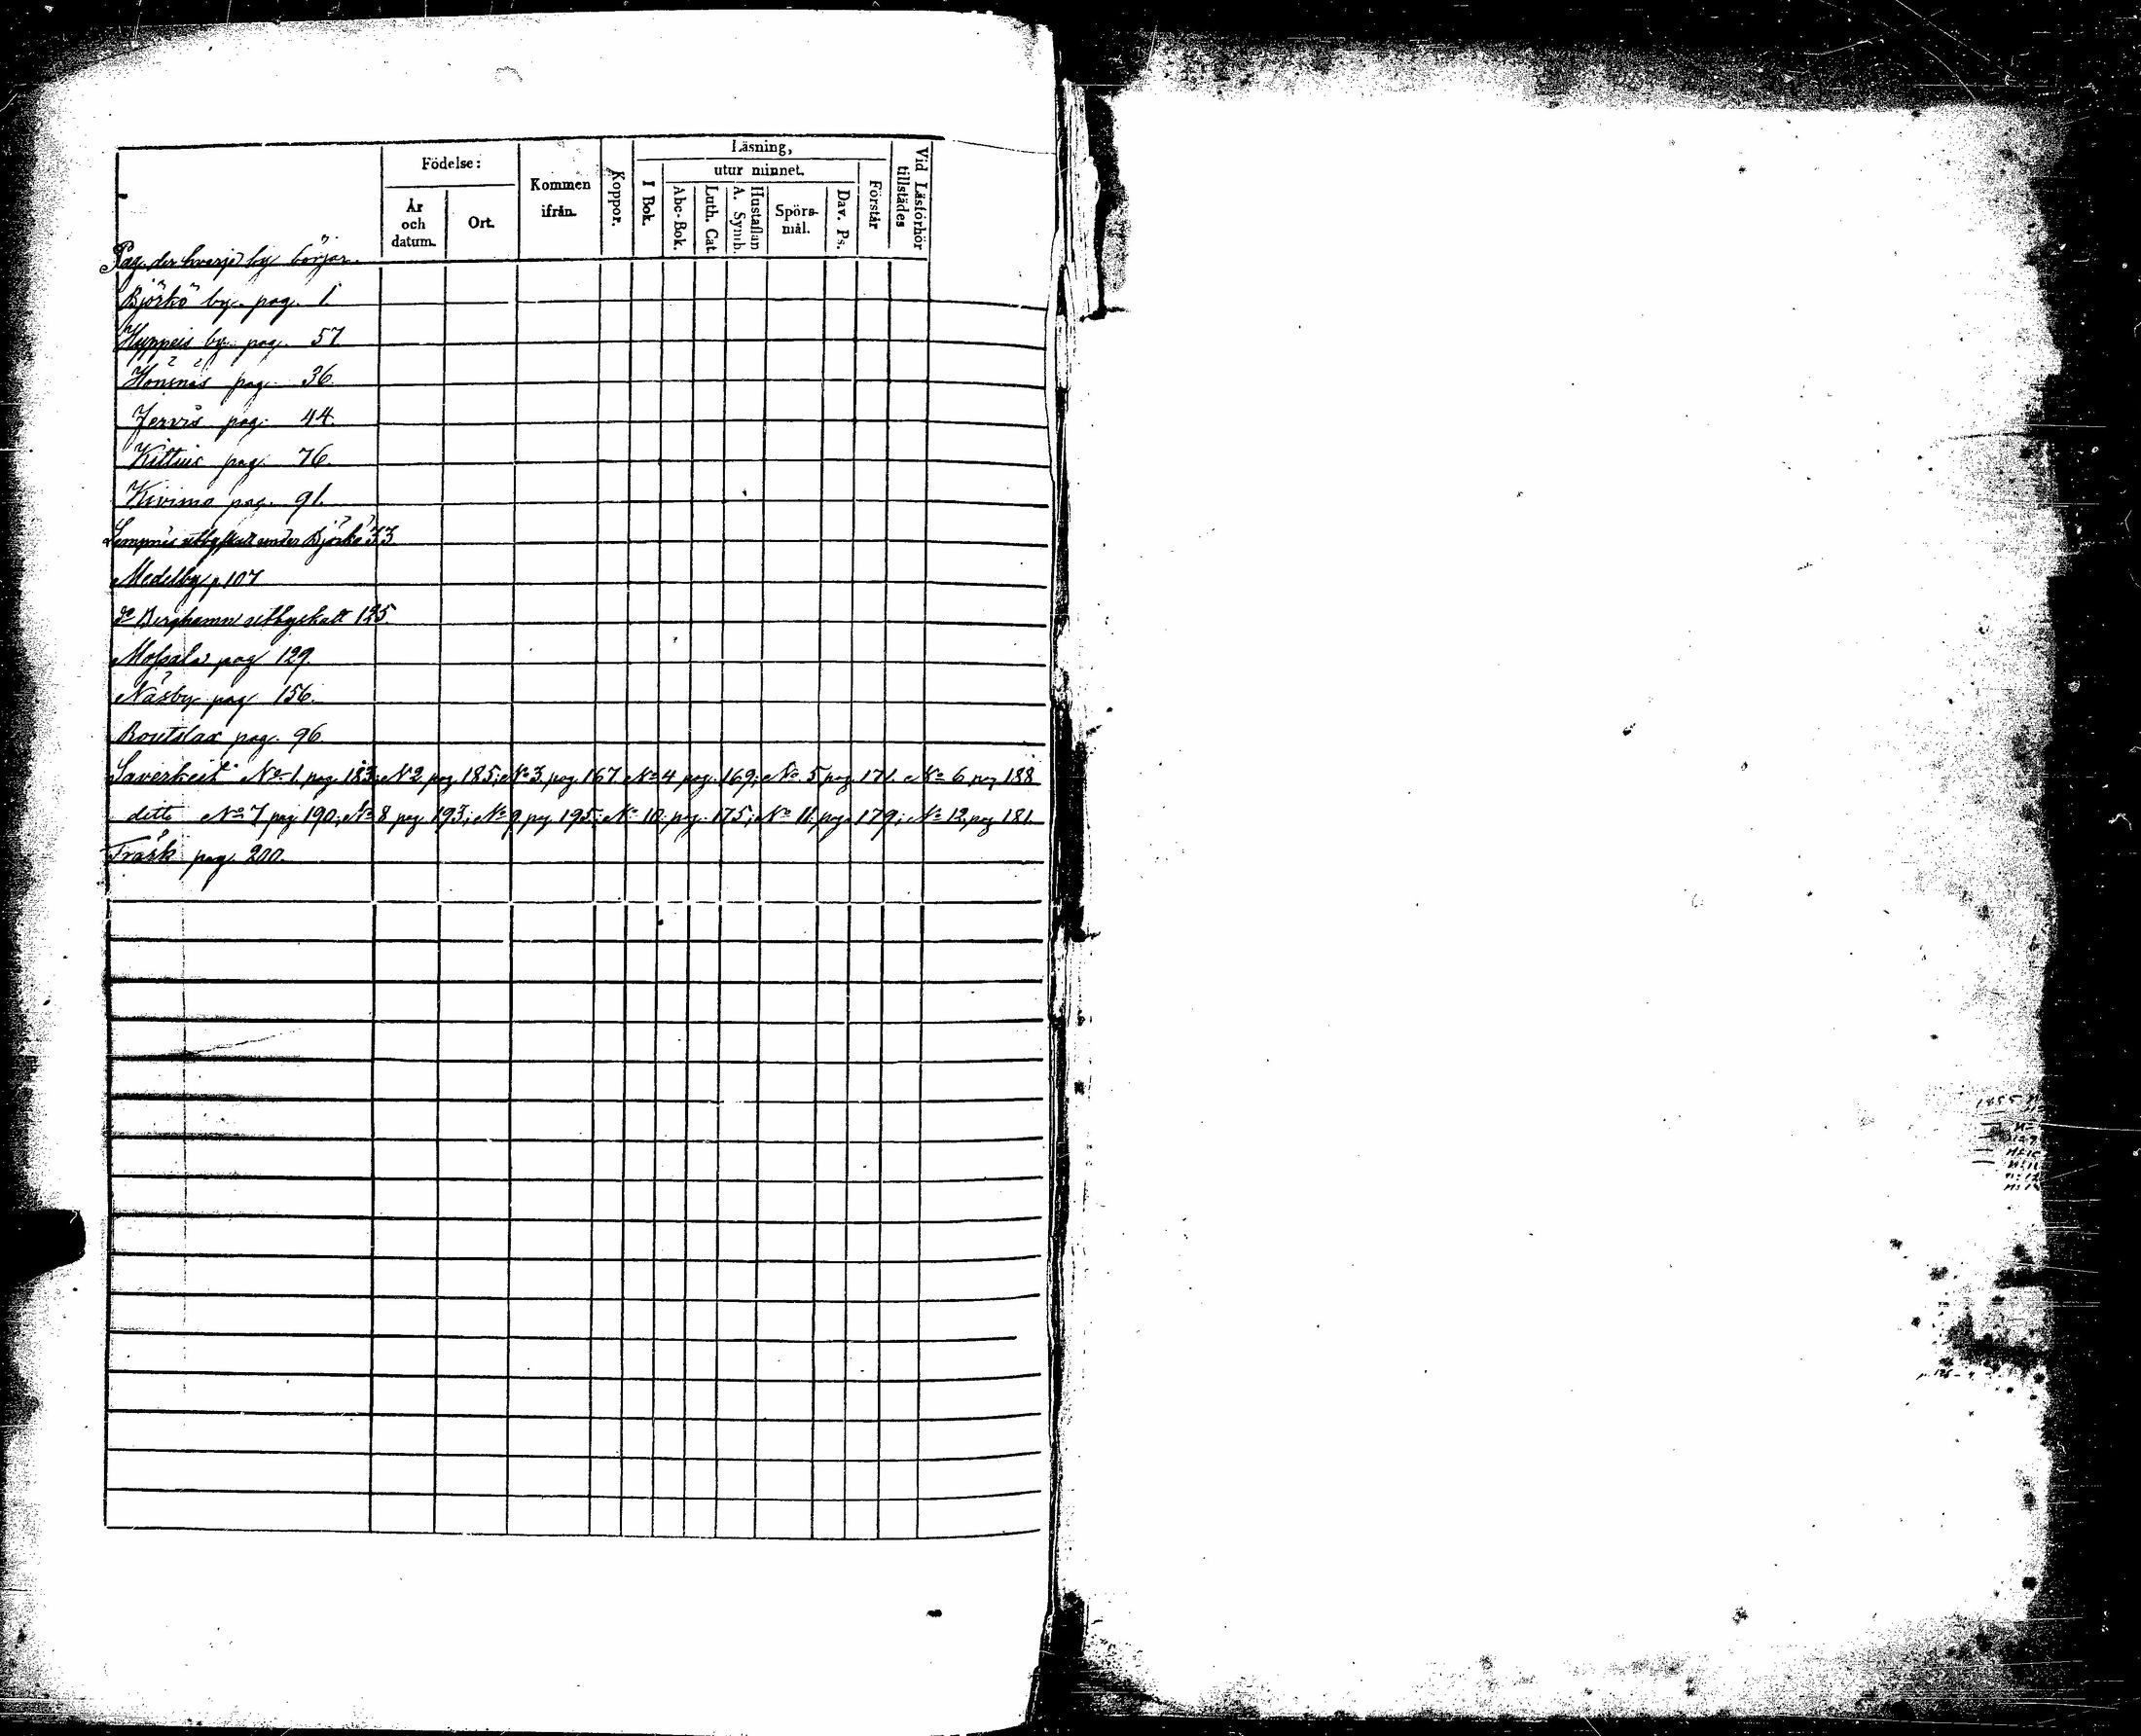 Födelse:
År och datum.
Ort.
Kommen ifrån.
Koppor.
Läsning,
I Bok.
utur minnet.
Abc-Bok.
Luth. Cat.
A. Symb.
Hustaflan
Spörs-
mål.
Dav. Ps.
Förstår
Vid Läsförhör
tillstädes
Pag. der hvarje by börjar.
Björkö by pag. 1.
Hyppeis by pag. 57.
Hönsnäs pag. 36.
Jervis pag. 44.
Kittuis pag. 76.
Kivimo pag. 91.
Lempnäs under Björkö 33
Medelby p 107
do Berghamn utbyskatt 125
Mossala pag 129.
Näsby pag 156.
Roslax pag. 96.
Saverkeit No 1. pag. 183; N 2 pag. 185; No 3. pag. 167 No 4 pag. 169; No. 5 pag. 171. No 6 pag 188
ditto No 7 pag 190; No 8 pag. 193; No 9 pag 195; No 10. pag. 175; No 11. pag. 179; No 12. pag 181.
Träsk pag. 200.